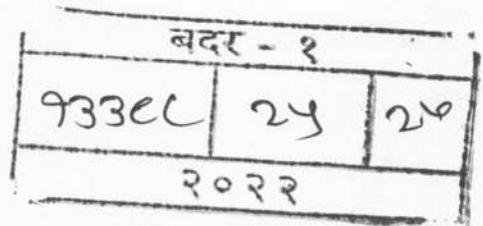 बदर - १
१३३९८ २५
२०२२